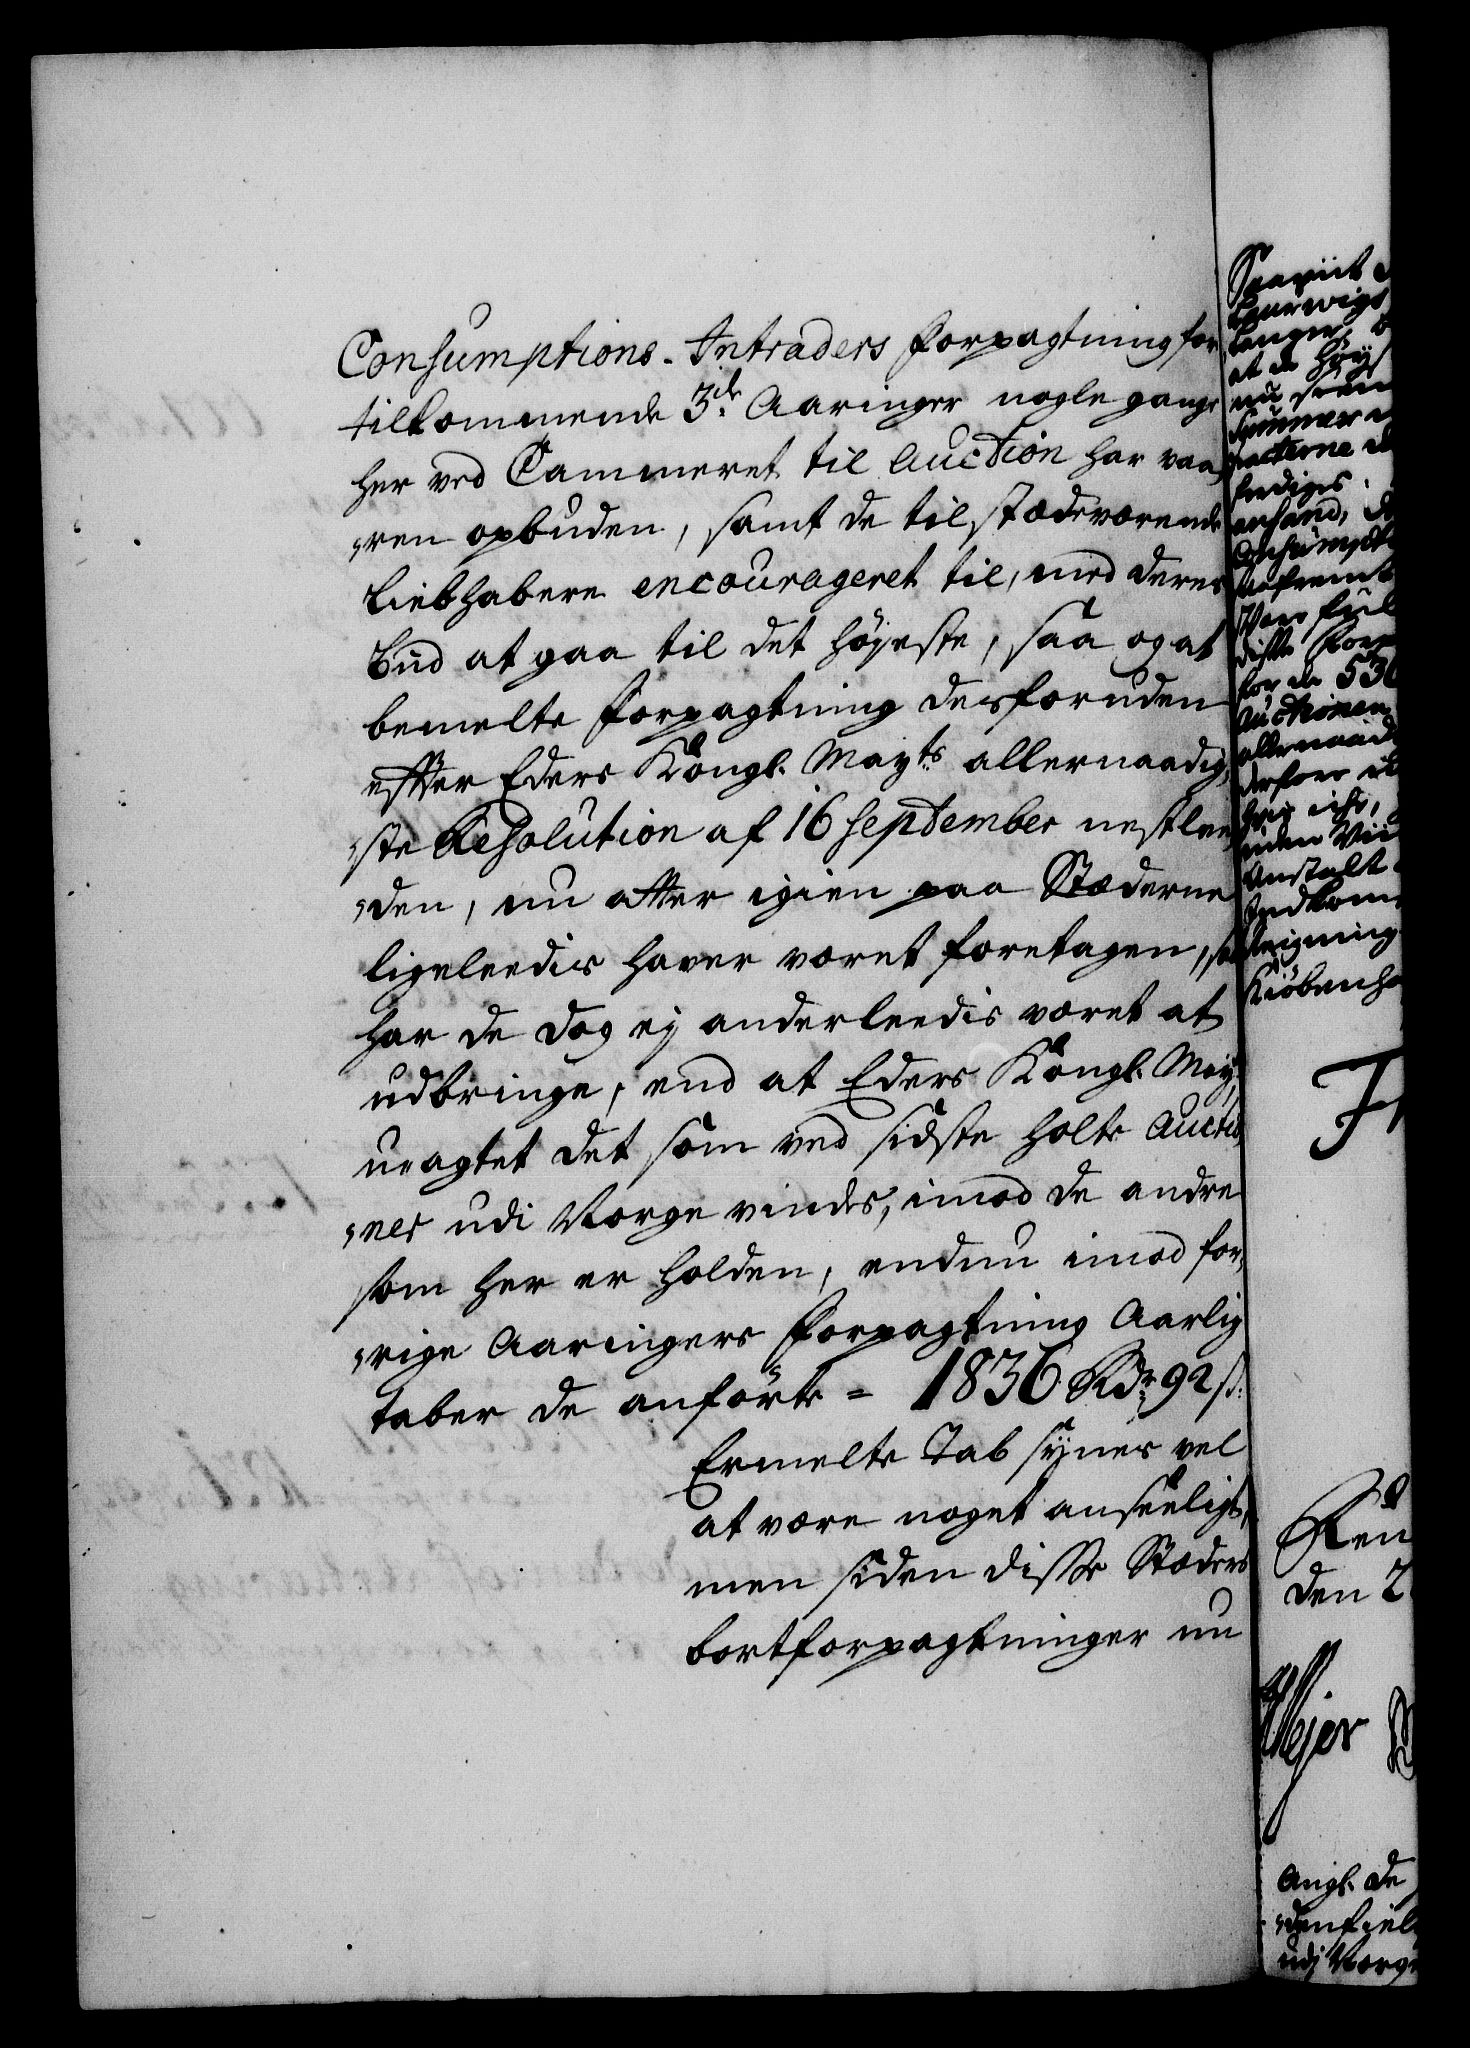 Consumptions-Intraders Forpagtning for
tilkommende 3de Aaringer nogle gange
her ved Cammeret til Auction har vaa-
,,ren opbuden, samt de tilstædeværende
Liebhabere encourageret til, med deres
Bud at gaa til det høyeste, saa og at
bemelte Forpagtning desforuden
efter Eders Kongl. Mayts allernaadig-
,,ste Resolution af 16 September nestlee-
,,den, nu atter igien paa Stæderne
ligeleedis haver været foretagen, saa
har de dog ej anderleedis været at
udbringe, end at Eders Kongl. May.
uagtet det som ved sidste holte Auctio-
,,ner udi Norge vindes, imod de andre
som her er holden, endnu imod for-
,,rige Aaringers Forpagtning Aarlig
taber de anførte = 1836 Rdr 92 s:
Ermelte Tab synes vel
at være noget anseeligt,
men siden disse Stæders
bortforpagtninger nu
Laurwigs
at de høy
nu
Summer
pacterne
Consumpt
disse Forp
for de 536
Auctionen
allernaad
derfore
uden Vii
Anstalt
Indkom
Kiøbenha
F
Ren
den 2
Angl. de
,,denfiel
udj Norge